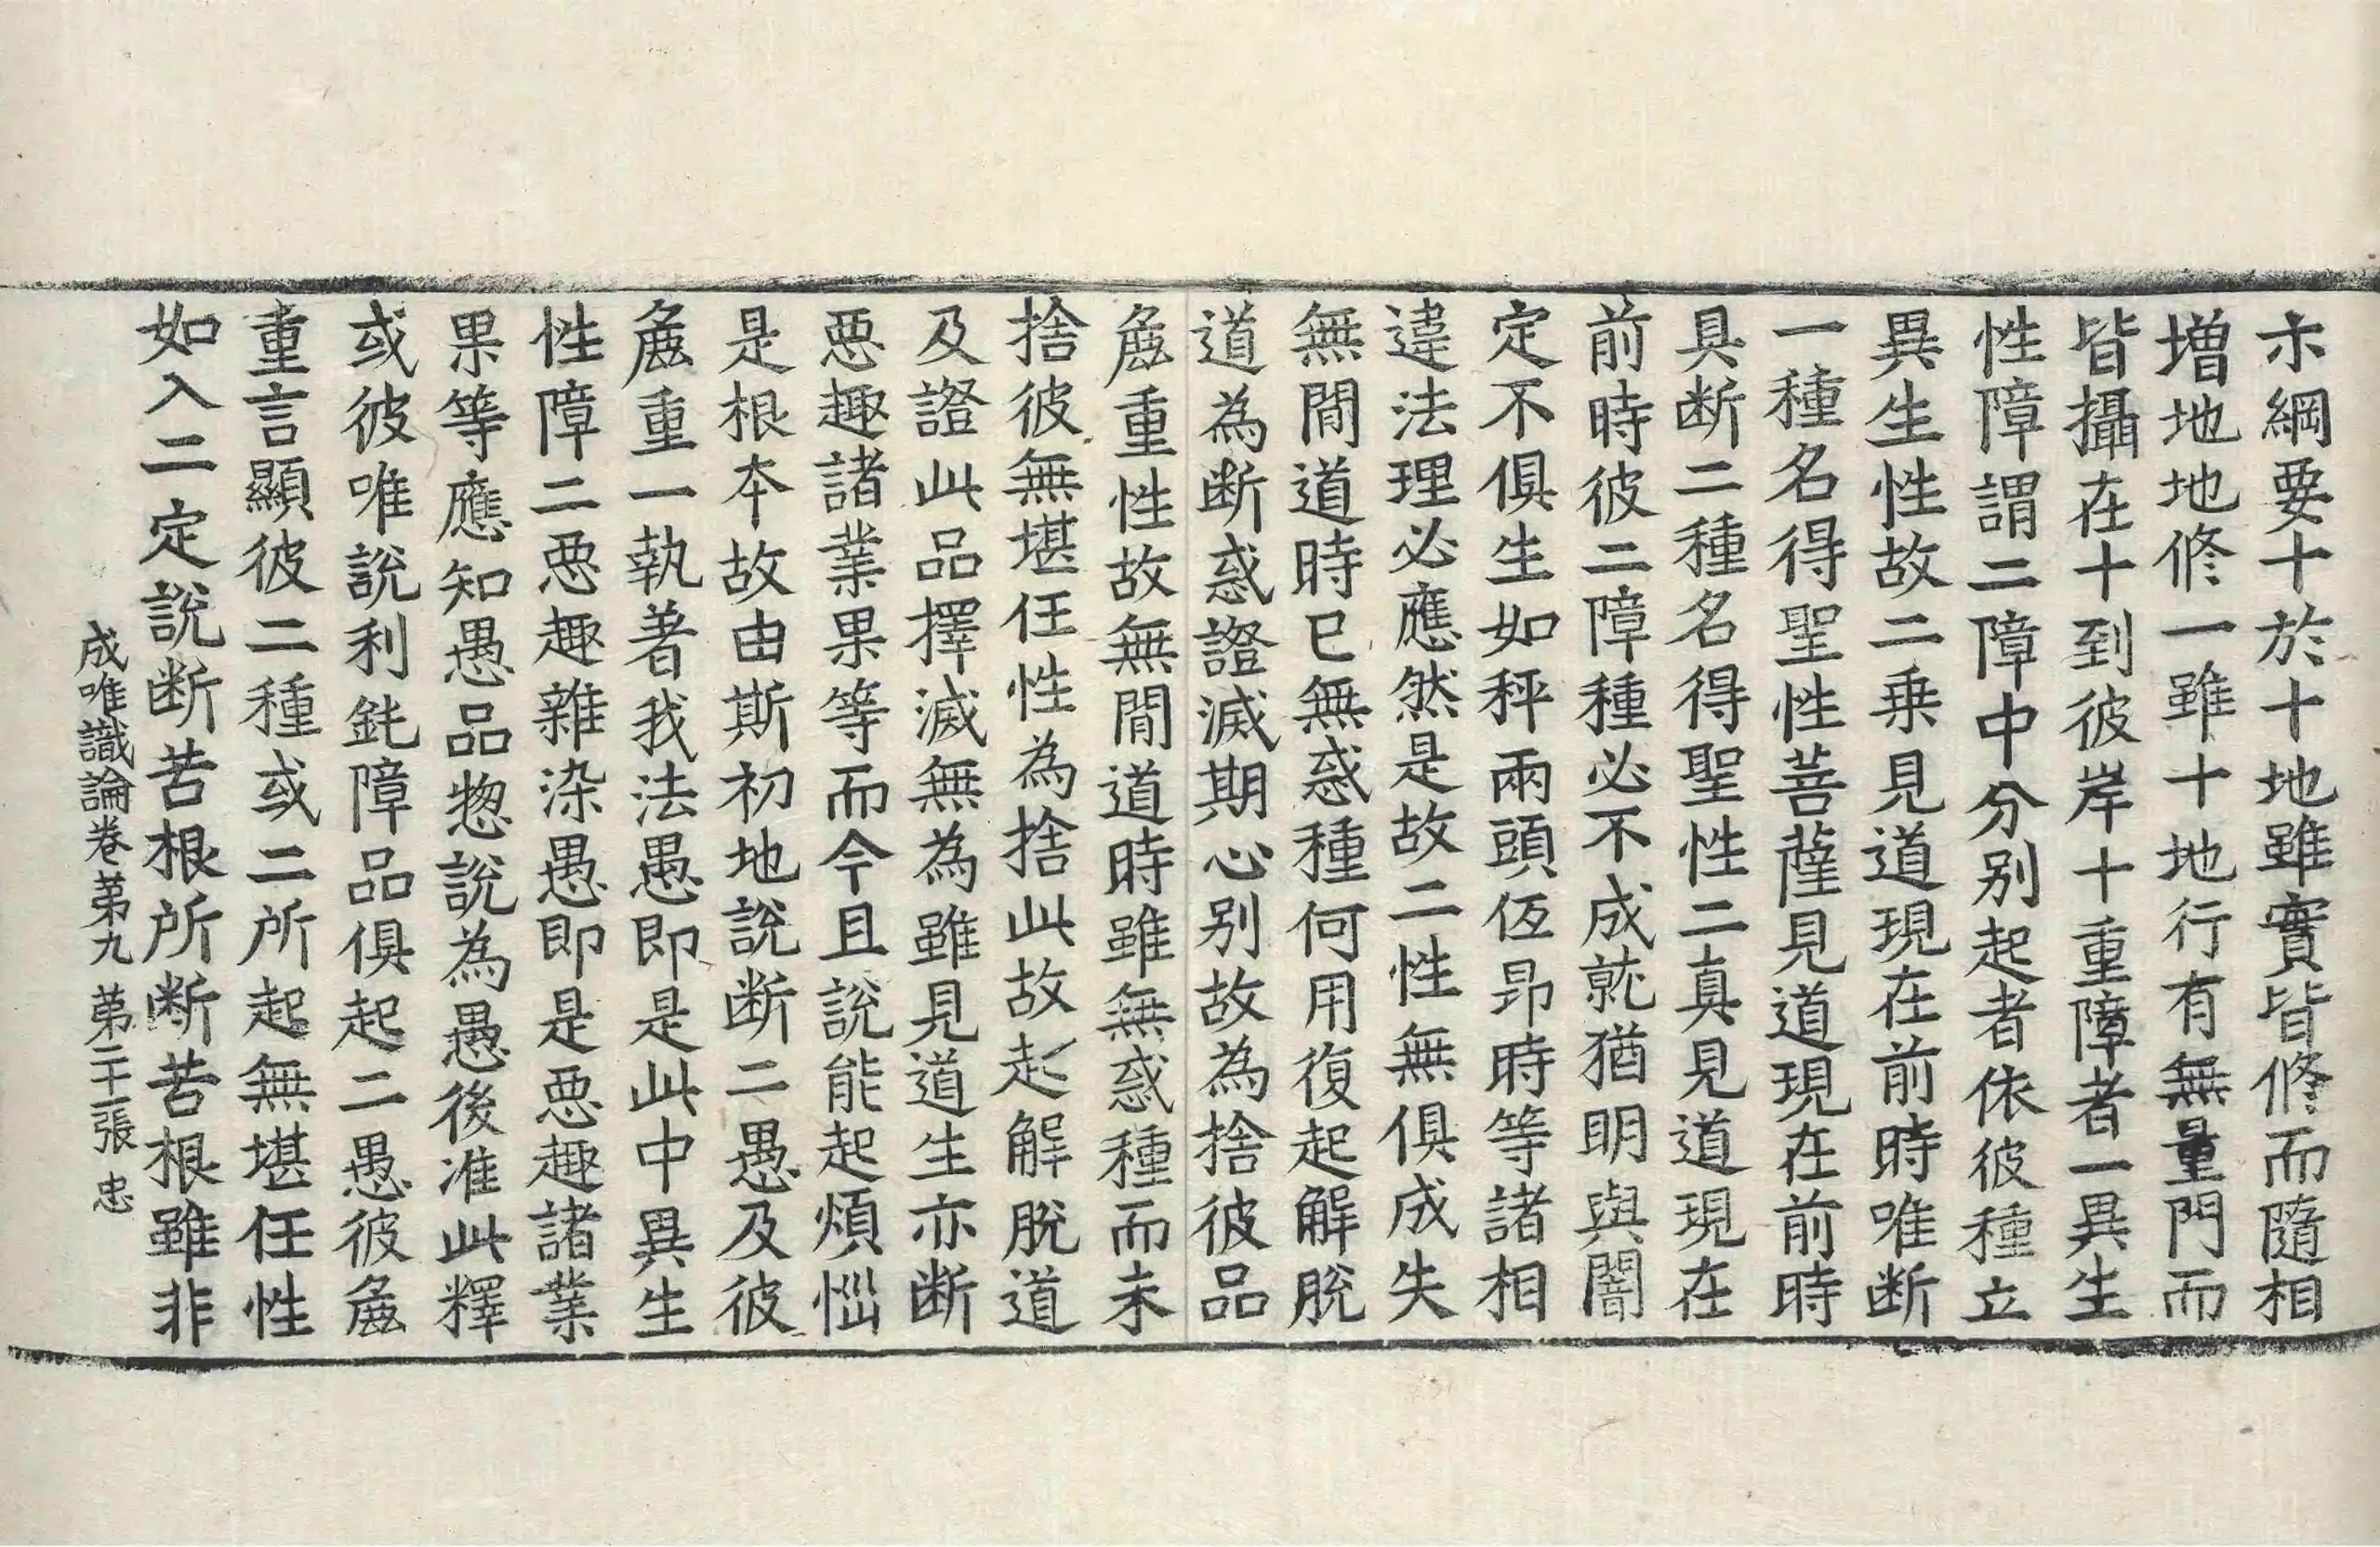 示綱要十於十地雖實皆修而隨相
增地地修一雖十地行有無量門而
皆攝在十到彼岸十重障者一異生
性障謂二障中分別起者依彼種立
異生性故二乗見道現在前時唯断
一種名得聖性菩薩見道現在前時
具断二種名得聖性二真見道現在
前時彼二障種必不成就猶明與闇
定不俱生如秤兩頭伍昂時等諸相
違法理必應然是故二性無俱成失
無間道時已無惑種何用復起解脫
道為断惑證滅期心別故為捨彼品
麁重性故無間道時雖無惑種而未
捨彼無堪任性為捨此故起解脫道
及證此品擇滅無為雖見道生亦断
惡趣諸業果等而今且說能起煩惱
是根本故由斯初地說断二愚及彼
麁重一執著我法愚即是此中異生
性障二惡趣雜染愚即是惡趣諸業
果等應知愚品惣說為愚後准此釋
或彼唯說利鈍障品俱起二愚彼麁
重言顯彼二種或二所起無堪任性
如入二定說断苦根所断苦根雖非
成唯識論卷第九 第二十張 忠